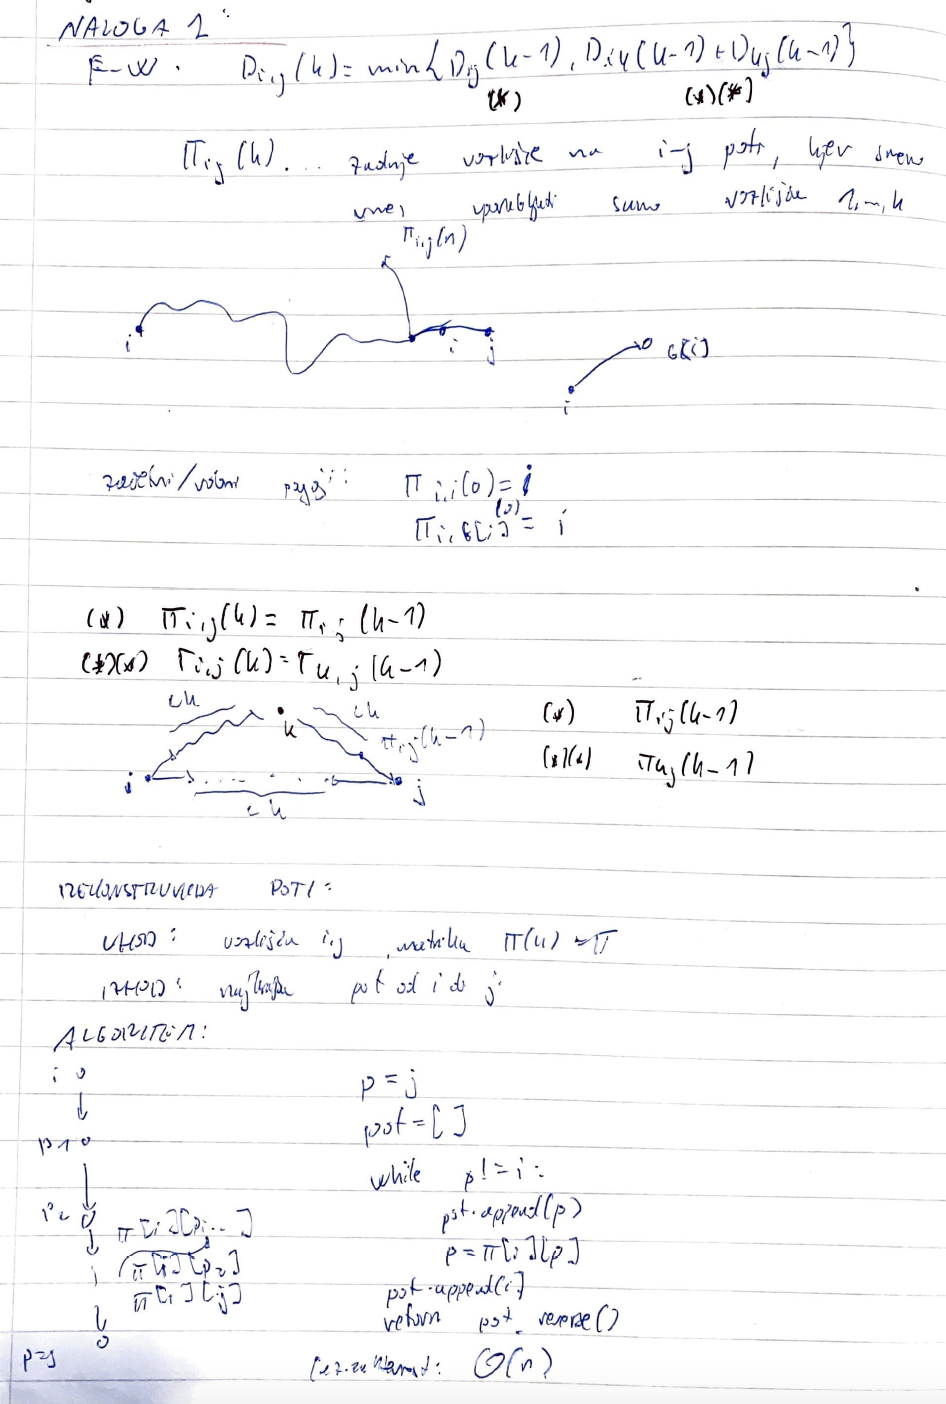 NALOGA 1:
F-W. Di,j(k) = min{Dij(k-1), Dik(k-1) + Dkj(k-1)}
(*) (*)(*)
Πi,j(k)... zadnje vozlišče na i-j poti, kjer smemo
vmes uporabljati samo vozlišča 1,...,k
Πi,j(n)
i i j
G[i]
i
začetni/robni pogoji: Πi,i(0) = i
Πi,G[i](0) = i
(*) Πi,j(k) = Πi,j(k-1)
(*)(*) Πi,j(k) = Πk,j(k-1)
<k k <k (*) Πij(k-1)
Πij(k-1)
(*)(*) Πkj(k-1)
i j
<k
REKONSTRUKCIJA POTI:
VHOD: vozlišča i,j, matrika Π(n) = Π
IZHOD: najkrajša pot od i do j
ALGORITEM:
i p = j
pot = []
p1
while p != i:
p2 pot.append(p)
Π[i][p...]
p = Π[i][p]
Π[i][p2]
Π[i][j] pot.append(i)
return pot.reverse()
p=j Čas. zahtevnost: O(n)